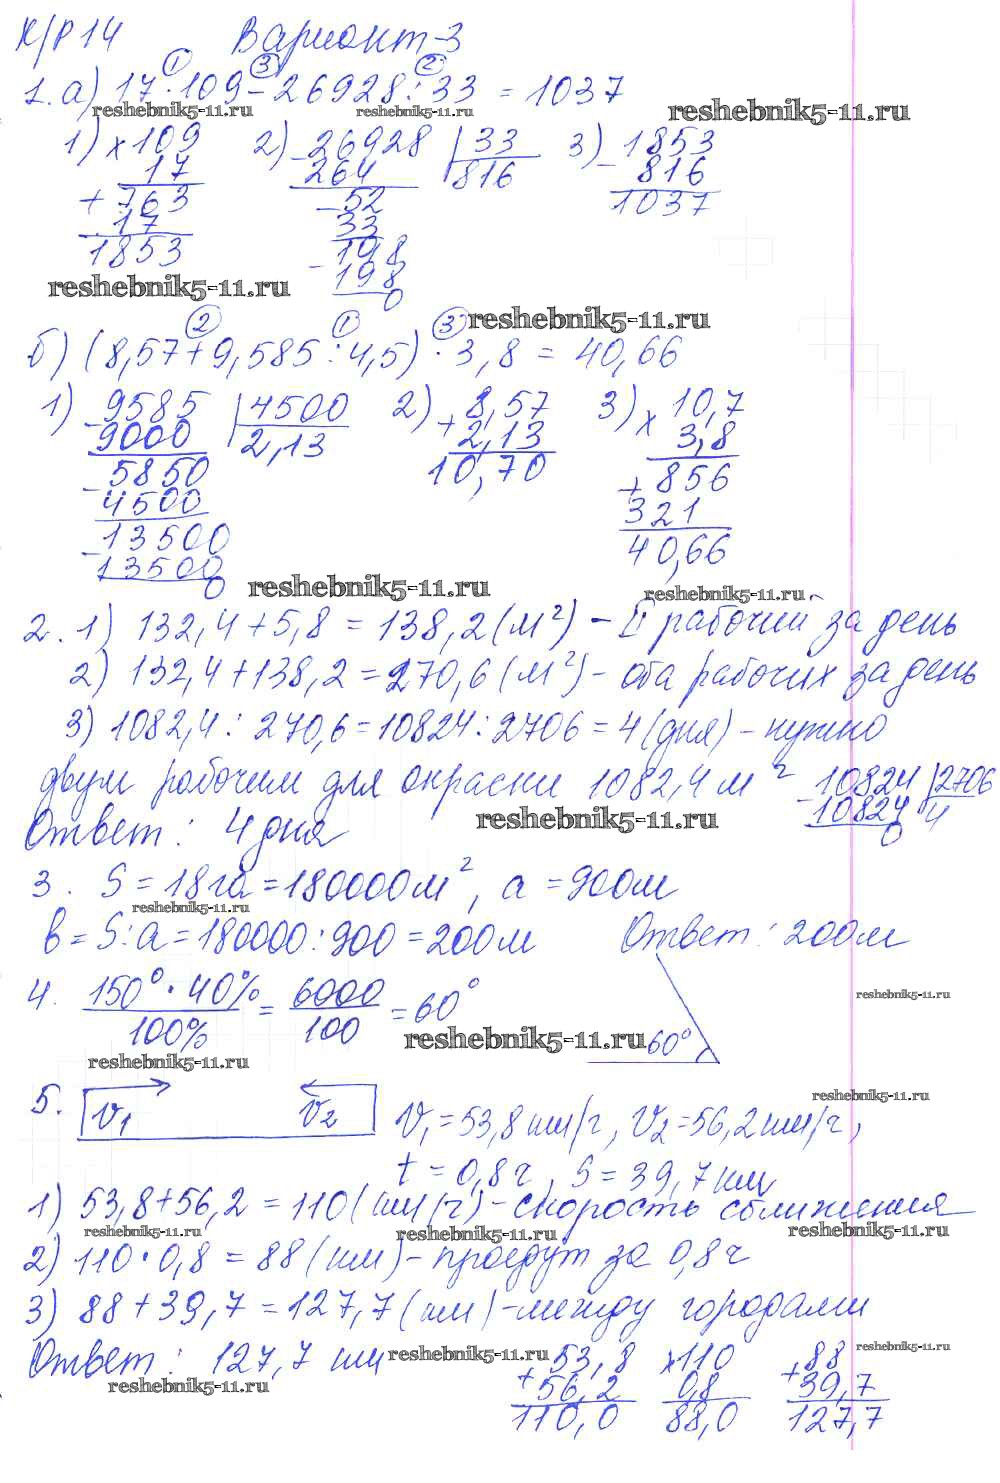 К/Р 14 Вариант-3
① ③ ②
1. а) 17 · 109 - 26928 : 33 = 1037
reshebnik5-11.ru reshebnik5-11.ru reshebnik5-11.ru
1) × 109 2) - 26928 | 33 3) - 1853
17 264 816 816
+ 763 - 52 1037
17 33
1853 198
- 198
reshebnik5-11.ru 0
② ① ③ reshebnik5-11.ru
б) (8,57 + 9,585 : 4,5) · 3,8 = 40,66
1) - 9585 | 4500 2) + 8,57 3) × 10,7
9000 2,13 2,13 3,8
- 5850 10,70 + 856
4500 321
- 13500 40,66
13500
0 reshebnik5-11.ru reshebnik5-11.ru
2. 1) 132,4 + 5,8 = 138,2 (м²) - II рабочий за день
2) 132,4 + 138,2 = 270,6 (м²) - оба рабочих за день
3) 1082,4 : 270,6 = 10824 : 2706 = 4 (дня) - нужно
двум рабочим для окраски 1082,4 м² - 10824 | 2706
10824 4
Ответ: 4 дня reshebnik5-11.ru 0
3. S = 18 га = 180000 м², a = 900 м
reshebnik5-11.ru
b = S : a = 180000 : 900 = 200 м Ответ: 200 м
4. 150° · 40% / 100% = 6000 / 100 = 60° reshebnik5-11.ru
reshebnik5-11.ru 60°
reshebnik5-11.ru
5. v₁ v₂ reshebnik5-11.ru
v₁ = 53,8 км/ч, v₂ = 56,2 км/ч,
t = 0,8 ч, S = 39,7 км
1) 53,8 + 56,2 = 110 (км/ч) - скорость сближения
reshebnik5-11.ru reshebnik5-11.ru reshebnik5-11.ru
2) 110 · 0,8 = 88 (км) - проедут за 0,8 ч
3) 88 + 39,7 = 127,7 (км) - между городами
Ответ: 127,7 км reshebnik5-11.ru reshebnik5-11.ru
reshebnik5-11.ru
+ 53,8 × 110 + 88
56,2 0,8 39,7
110,0 88,0 127,7